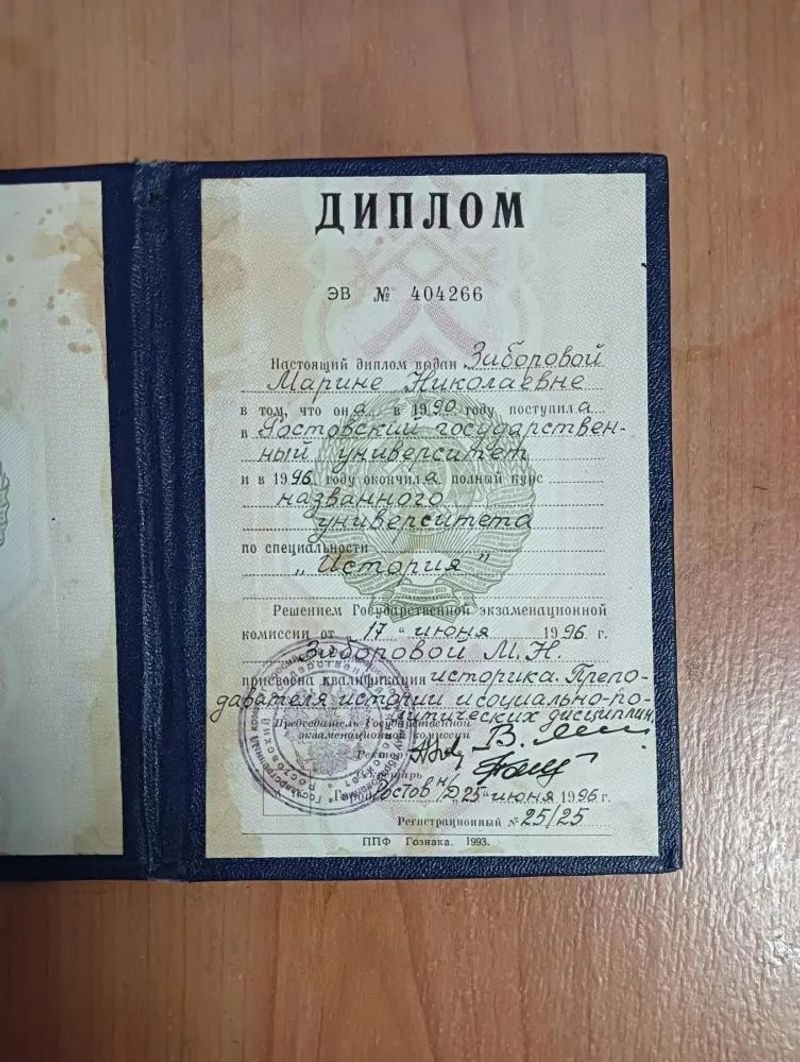 ДИПЛОМ
ЭВ № 404266
Настоящий диплом выдан Зиборовой
Марине Николаевне
в том, что она в 1990 году поступила
в Ростовский государствен-
ный университет
и в 1996 году окончила полный курс
названного
университета
по специальности
„История"
Решением Государственной экзаменационной
комиссии от „17" июня 1996 г.
Зиборовой М.Н.
присвоена квалификация историка. Препо-
давателя истории и социально-по-
литических дисциплин.
Председатель Государственной
экзаменационной комиссии
Ректор
Секретарь
Город Ростов н/Д „25" июня 1996 г.
Регистрационный № 25/25
ППФ Гознака. 1993.